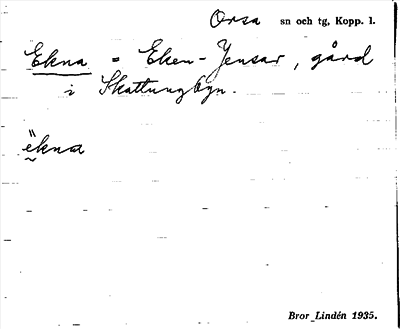 Orsa sn och tg, Kopp. l.
Ekna = Eken-Jensar, gård
i Skattungbyn.
ëkna
Bror Lindén 1935.